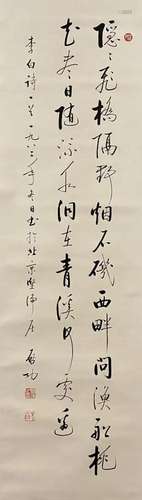 隱〻飛橋隔野烟石磯西畔問漁船桃
花盡日隨流水洞在青溪何處邊
李白詩一首一九八二年冬日書於北京堅淨居 啟功